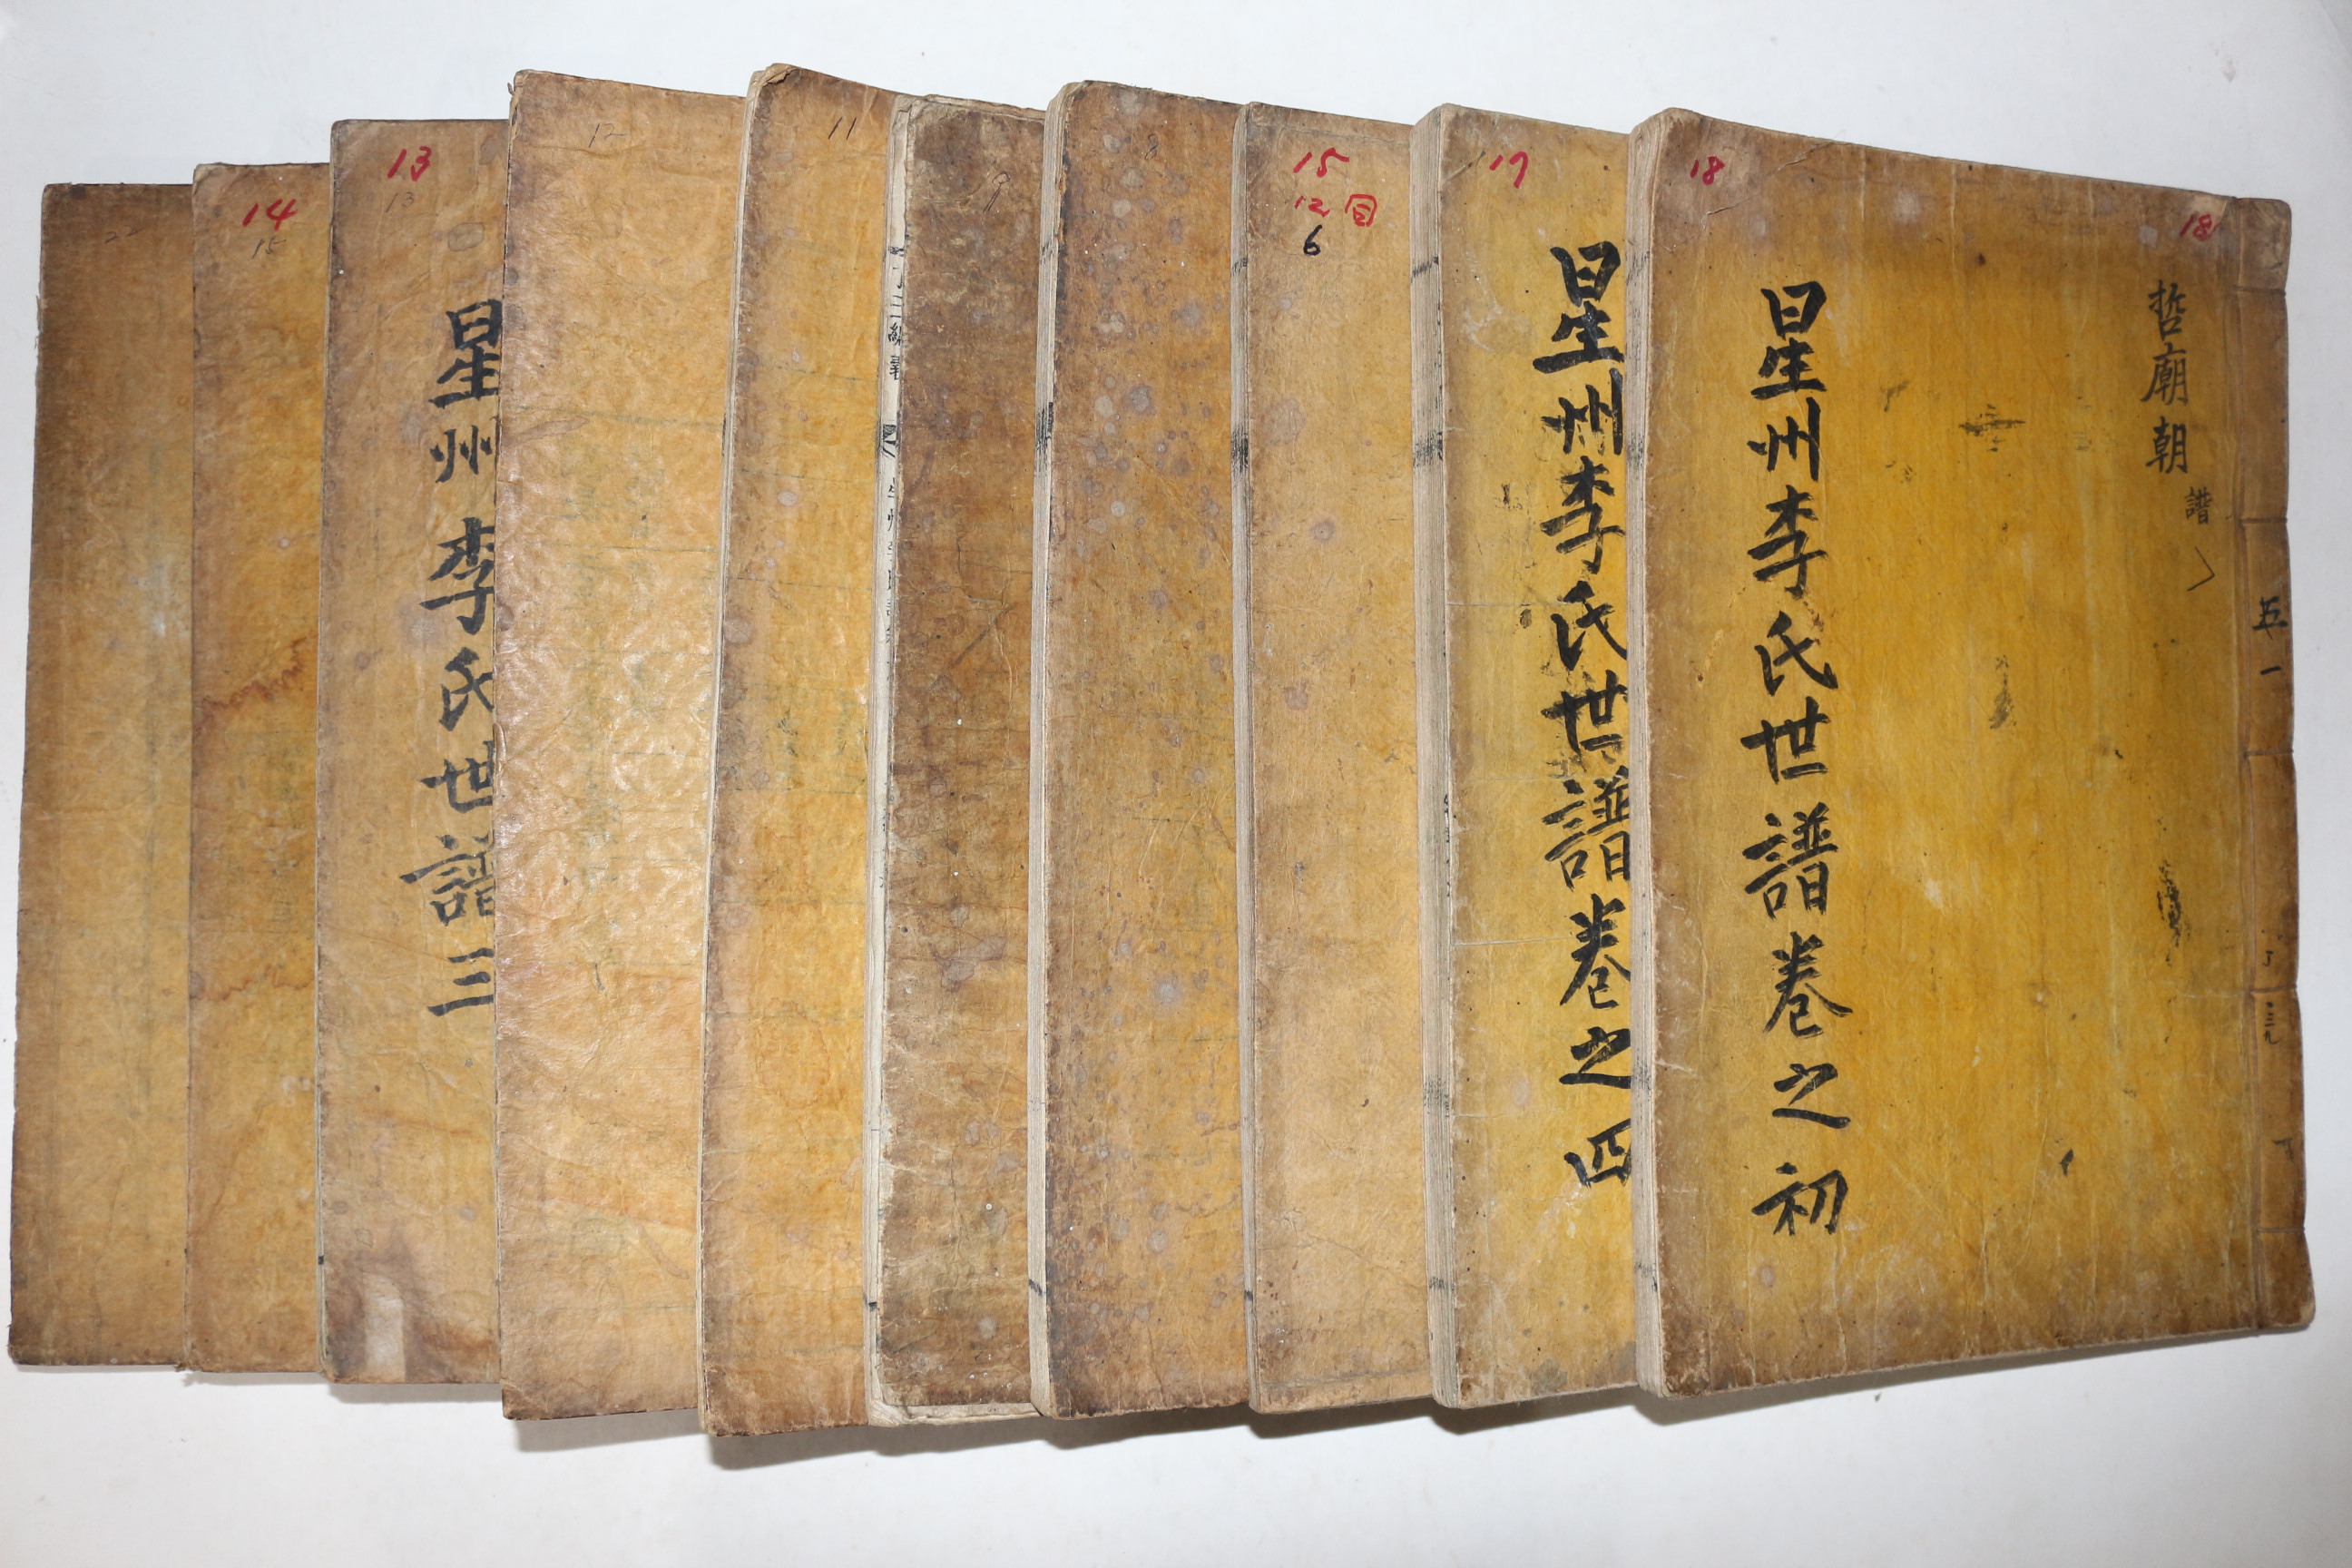 22
14
15
13
13
星州李氏世譜三
12
11
9
8
15
12 目
6
17
星州李氏世譜卷之四
18
星州李氏世譜卷之初
18
哲廟朝
譜
五
一